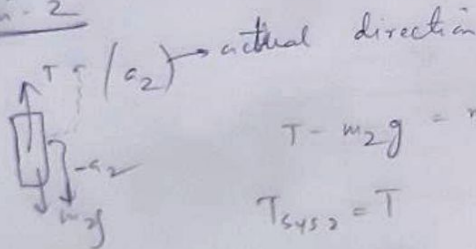 - 2
T (a₂) → actual direction
-a₂
m₂g
T - m₂g =
T_sys₂ = T